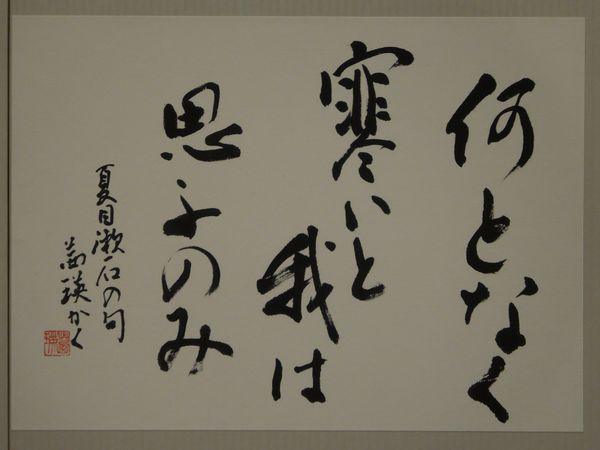 何となく
寒いと
我は
思ふのみ
夏目漱石の句
瑛かく